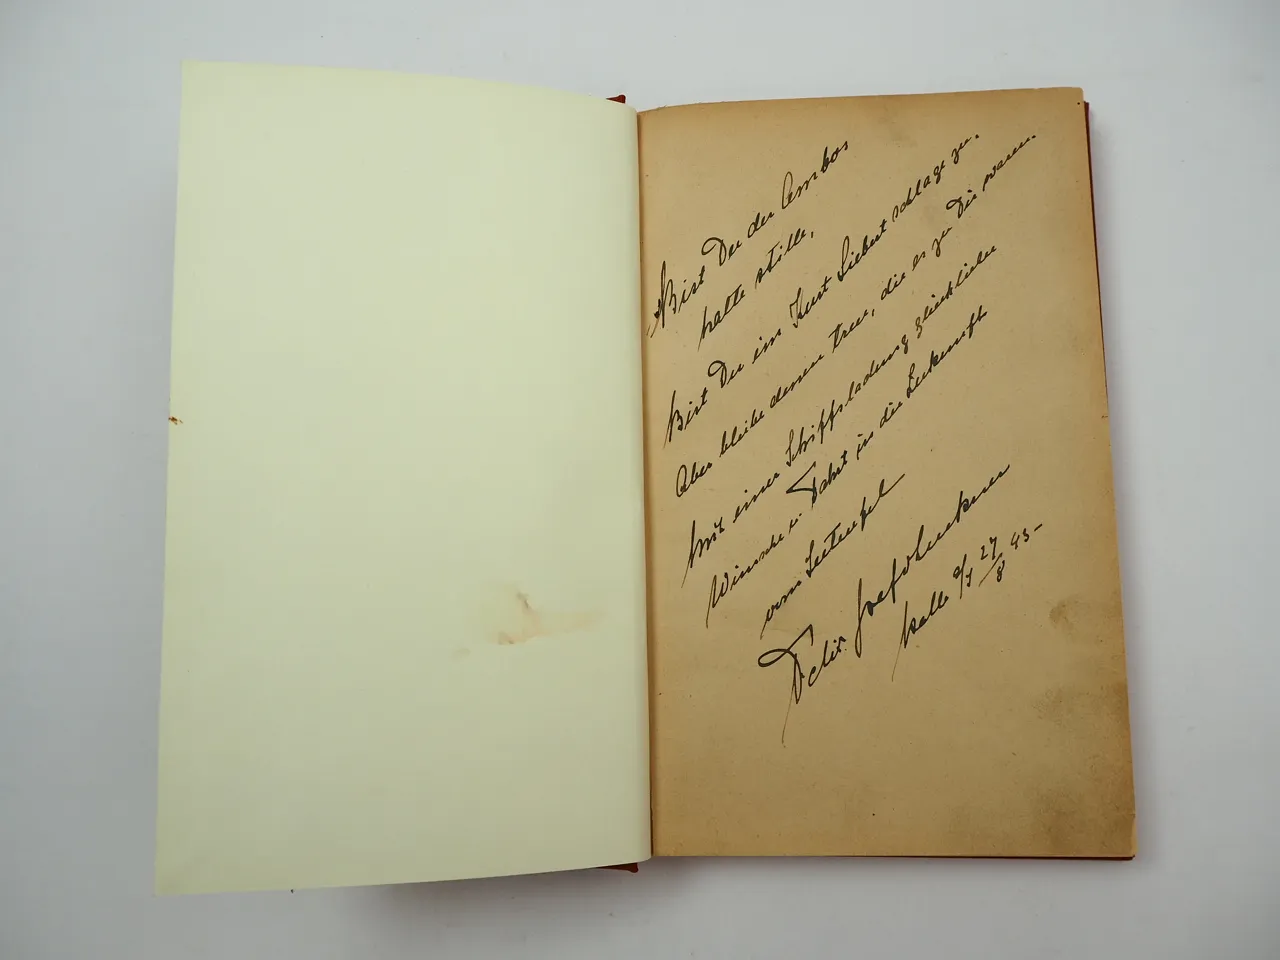 Bist Du der Ambos
halte stille,
Bist Du im Kurt Siebert schlage zu.
Aber bleibe denen treu, die es zu Dir waren.
Mit einer Schiffsladung glücklicher
Wünsche u. Fahrt in die Zukunft
vom Seeteufel
Felix Graf v Luckner
Halle a/S 27/8 43-